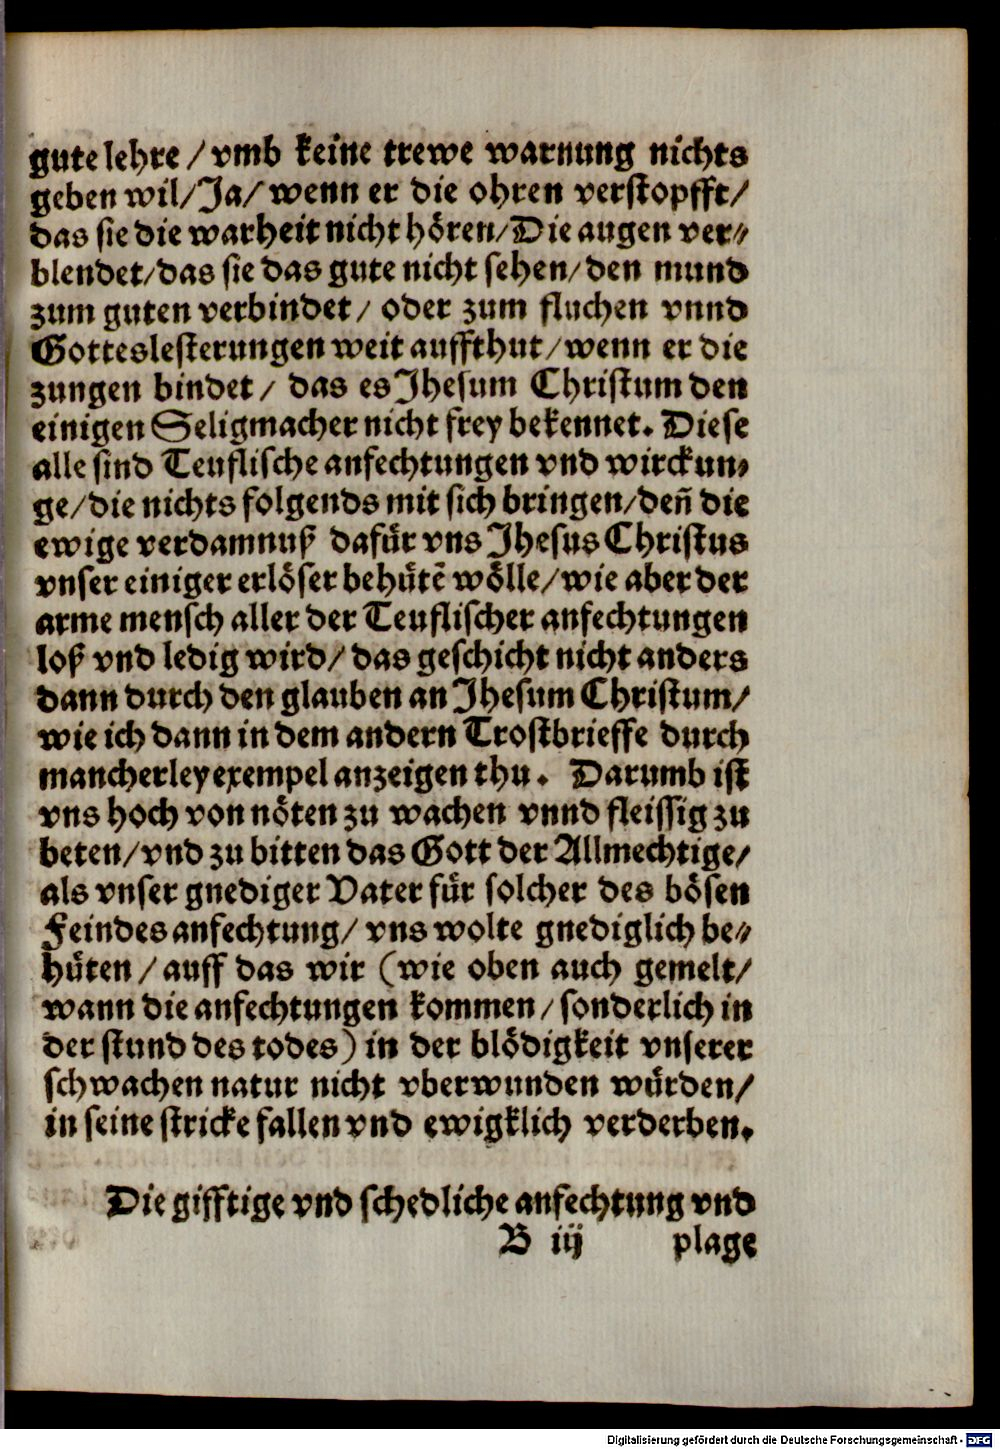 gute lehre / vmb keine trewe warnung nichts
geben wil / Ja / wenn er die ohren verstopfft /
das sie die warheit nicht hören / Die augen ver⸗
blendet / das sie das gute nicht sehen / den mund
zum guten verbindet / oder zum fluchen vnnd
Gotteslesterungen weit auffthut / wenn er die
zungen bindet / das es Jhesum Christum den
einigen Seligmacher nicht frey bekennet. Diese
alle sind Teuflische anfechtungen vnd wirckun⸗
ge / die nichts folgends mit sich bringen / deñ die
ewige verdamnuß dafür vns Jhesus Christus
vnser einiger erlöser behütẽ wölle / wie aber der
arme mensch aller der Teuflischer anfechtungen
loß vnd ledig wird / das geschicht nicht anders
dann durch den glauben an Jhesum Christum /
wie ich dann in dem andern Trostbrieffe durch
mancherley exempel anzeigen thu. Darumb ist
vns hoch von nöten zu wachen vnnd fleissig zu
beten / vnd zu bitten das Gott der Allmechtige /
als vnser gnediger Vater für solcher des bösen
Feindes anfechtung / vns wolte gnediglich be⸗
hüten / auff das wir (wie oben auch gemelt /
wann die anfechtungen kommen / sonderlich in
der stund des todes) in der blödigkeit vnserer
schwachen natur nicht vberwunden würden /
in seine stricke fallen vnd ewigklich verderben.
Die gifftige vnd schedliche anfechtung vnd
B iij plage
Digitalisierung gefördert durch die Deutsche Forschungsgemeinschaft - DFG